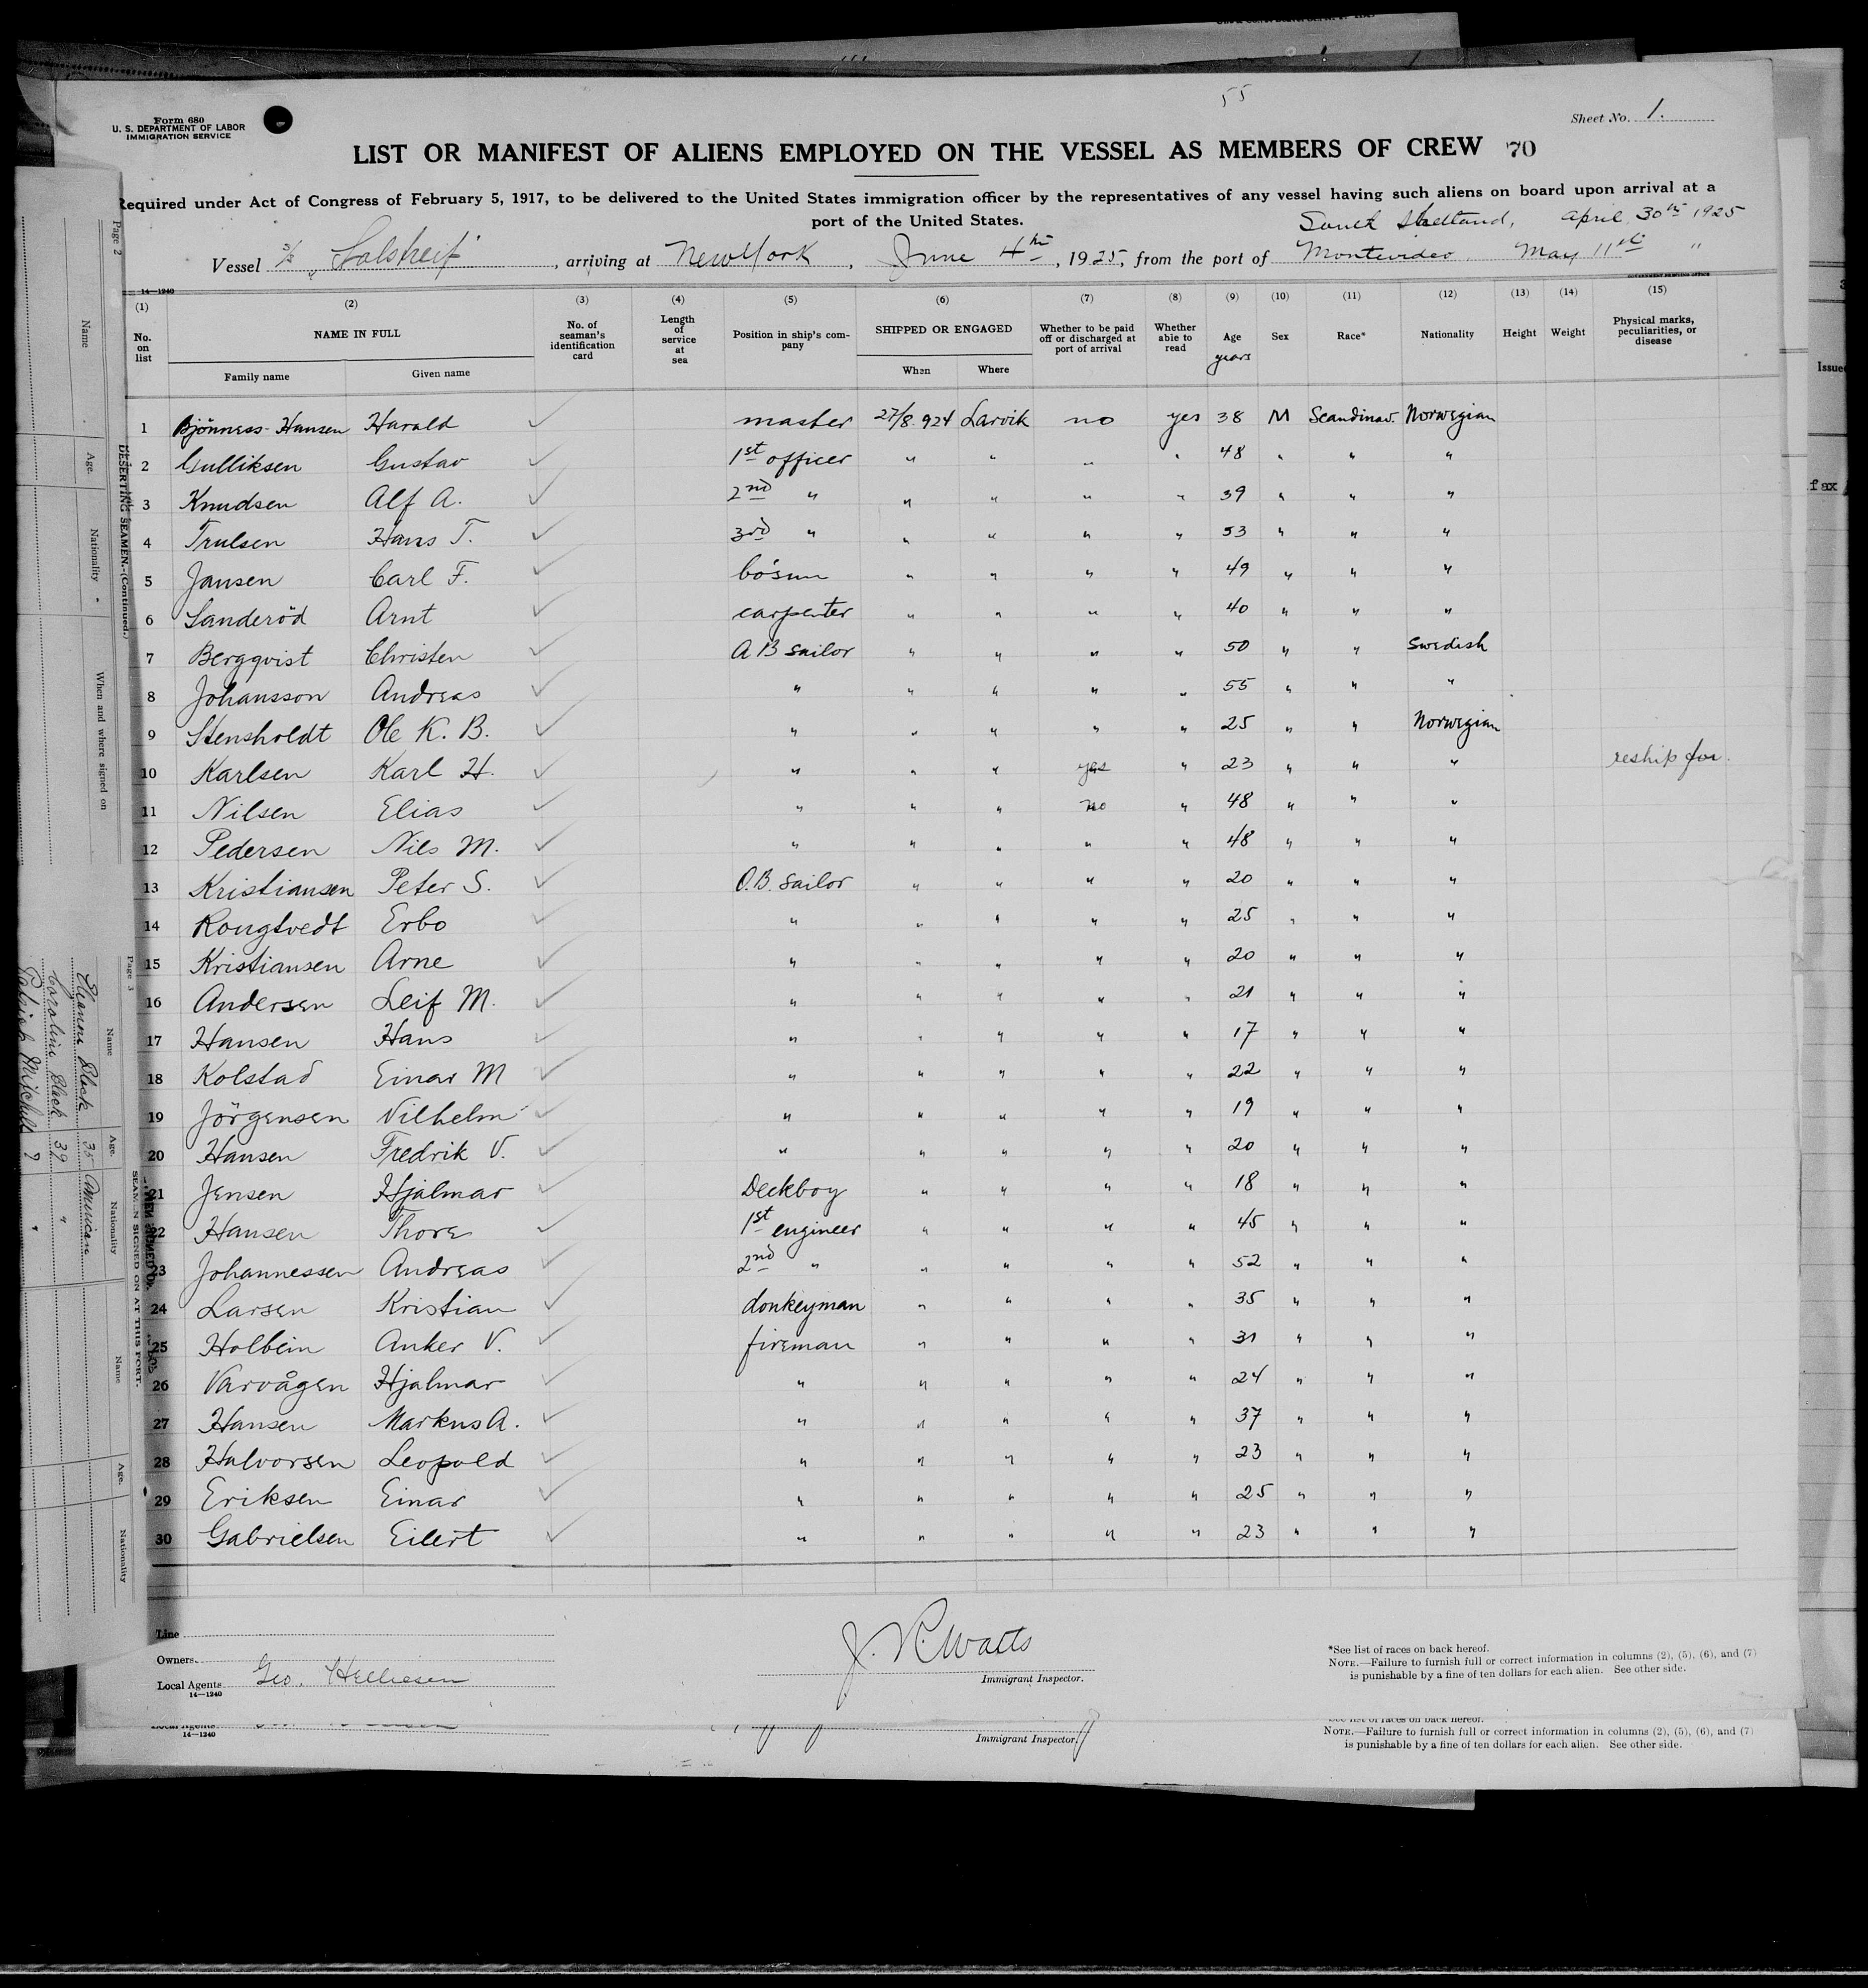 55
Form 680
U. S. DEPARTMENT OF LABOR
IMMIGRATION SERVICE
Sheet No. 1.
LIST OR MANIFEST OF ALIENS EMPLOYED ON THE VESSEL AS MEMBERS OF CREW 70
Required under Act of Congress of February 5, 1917, to be delivered to the United States immigration officer by the representatives of any vessel having such aliens on board upon arrival at a
port of the United States.
South Shetland, April 30th 1925
Vessel S/S "Solstreif", arriving at New York, June 4th, 1925, from the port of Montevideo, May 11th "
14—1240
(1) (2) (3) (4) (5) (6) (7) (8) (9) (10) (11) (12) (13) (14) (15)
No. on list NAME IN FULL No. of seaman's identification card Length of service at sea Position in ship's company SHIPPED OR ENGAGED Whether to be paid off or discharged at port of arrival Whether able to read Age years Sex Race* Nationality Height Weight Physical marks, peculiarities, or disease
Family name Given name When Where
1 Bjönness-Hansen Harald master 27/8.924 Larvik no yes 38 M Scandinav. Norwegian
2 Gulliksen Gustav 1st officer " " " " 48 " " "
3 Knudsen Alf A. 2nd " " " " " 39 " " "
4 Trulsen Hans T. 3rd " " " " " 53 " " "
5 Jansen Carl F. bo'sun " " " " 49 " " "
6 Sanderöd Arnt carpenter " " " " 40 " " "
7 Bergqvist Christen AB sailor " " " " 50 " " Swedish
8 Johansson Andreas " " " " " 55 " " "
9 Stensholdt Ole K. B. " " " " " 25 " " Norwegian
10 Karlsen Karl H. " " " yes " 23 " " " reship for.
11 Nilsen Elias " " " no " 48 " " "
12 Pedersen Nils M. " " " " " 48 " " "
13 Kristiansen Peter S. O.B. sailor " " " " 20 " " "
14 Rougtvedt Erbo " " " " " 25 " " "
15 Kristiansen Arne " " " " " 20 " " "
16 Andersen Leif M. " " " " " 21 " " "
17 Hansen Hans " " " " " 17 " " "
18 Kolstad Einar M " " " " " 22 " " "
19 Jörgensen Vilhelm " " " " " 19 " " "
20 Hansen Fredrik V. " " " " " 20 " " "
21 Jensen Hjalmar Deckboy " " " " 18 " " "
22 Hansen Thore 1st engineer " " " " 45 " " "
23 Johannessen Andreas 2nd " " " " " 52 " " "
24 Larsen Kristian donkeyman " " " " 35 " " "
25 Holbein Anker V. fireman " " " " 31 " " "
26 Varvågen Hjalmar " " " " " 24 " " "
27 Hansen Markus A. " " " " " 37 " " "
28 Halvorsen Leopold " " " " " 23 " " "
29 Eriksen Einar " " " " " 25 " " "
30 Gabrielsen Eilert " " " " " 23 " " "
Line
Owners
Local Agents Geo. Helliesen
14—1240
J. R. Watts
Immigrant Inspector.
*See list of races on back hereof.
NOTE.—Failure to furnish full or correct information in columns (2), (5), (6), and (7)
is punishable by a fine of ten dollars for each alien. See other side.
14—1240
Immigrant Inspector.
NOTE.—Failure to furnish full or correct information in columns (2), (5), (6), and (7)
is punishable by a fine of ten dollars for each alien. See other side.
Page 2
DESERTING SEAMEN.—(Continued.)
Name
Age.
Nationality
When and where signed on
Page 3
SEAMEN SIGNED ON AT THIS PORT.
Name
Age.
Nationality
Eleanor Black 35 American
Caroline Black 39 "
Patrick Mitchell ? "
Name
Age.
Nationality
Issue
fax